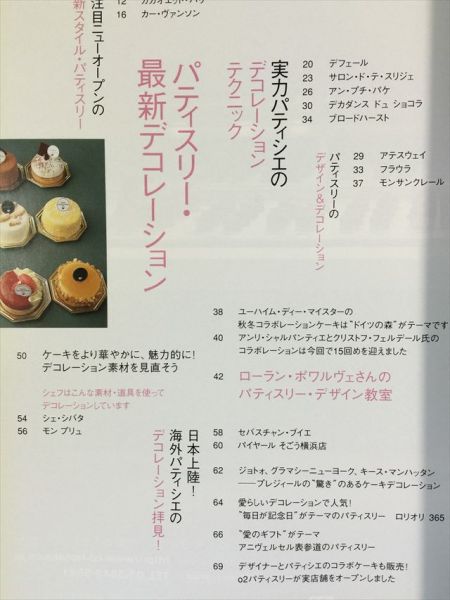 注目ニューオープンの
新スタイル・パティスリー
16 カー・ヴァンソン
パティスリー・
最新デコレーション
実力パティシエの
デコレーション
テクニック
20 デフェール
23 サロン・ド・テ・スリジェ
26 アン・プチ・パケ
30 デカダンス ドュ ショコラ
34 ブロードハースト
パティスリーの
デザイン&デコレーション
29 アテスウェイ
33 フラウラ
37 モンサンクレール
38 ユーハイム・ディー・マイスターの
秋冬コラボレーションケーキは“ドイツの森”がテーマです
40 アンリ・シャルパンティエとクリストフ・フェルデール氏の
コラボレーションは今回で15回めを迎えました
42 ローラン・ボワルヴェさんの
パティスリー・デザイン教室
50 ケーキをより華やかに、魅力的に!
デコレーション素材を見直そう
シェフはこんな素材・道具を使って
デコレーションしています
54 シェ・シバタ
56 モン プリュ
日本上陸!
海外パティシエの
デコレーション拝見!
58 セバスチャン・ブイエ
60 バイヤール そごう横浜店
62 ジョトォ、グラマシーニューヨーク、キース・マンハッタン
――プレジィールの“驚き”のあるケーキデコレーション
64 愛らしいデコレーションで人気!
“毎日が記念日”がテーマのパティスリー ロリオリ 365
66 “愛のギフト”がテーマ
アニヴェルセル表参道のパティスリー
69 デザイナーとパティシエのコラボケーキも販売!
o2パティスリーが実店舗をオープンしました